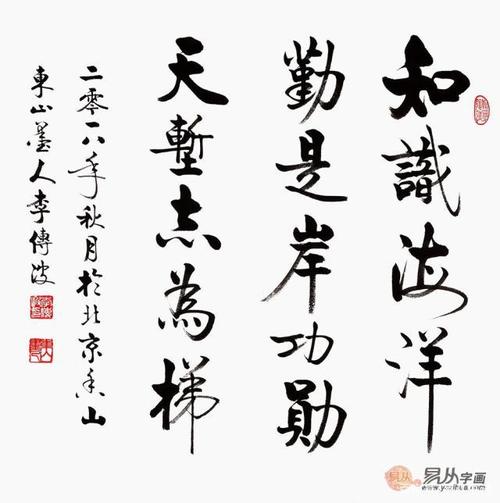 知識海洋
勤是岸功勛
天塹志為梯
二零一八年秋月於北京香山
東山墨人李傳波
易从
易从字画